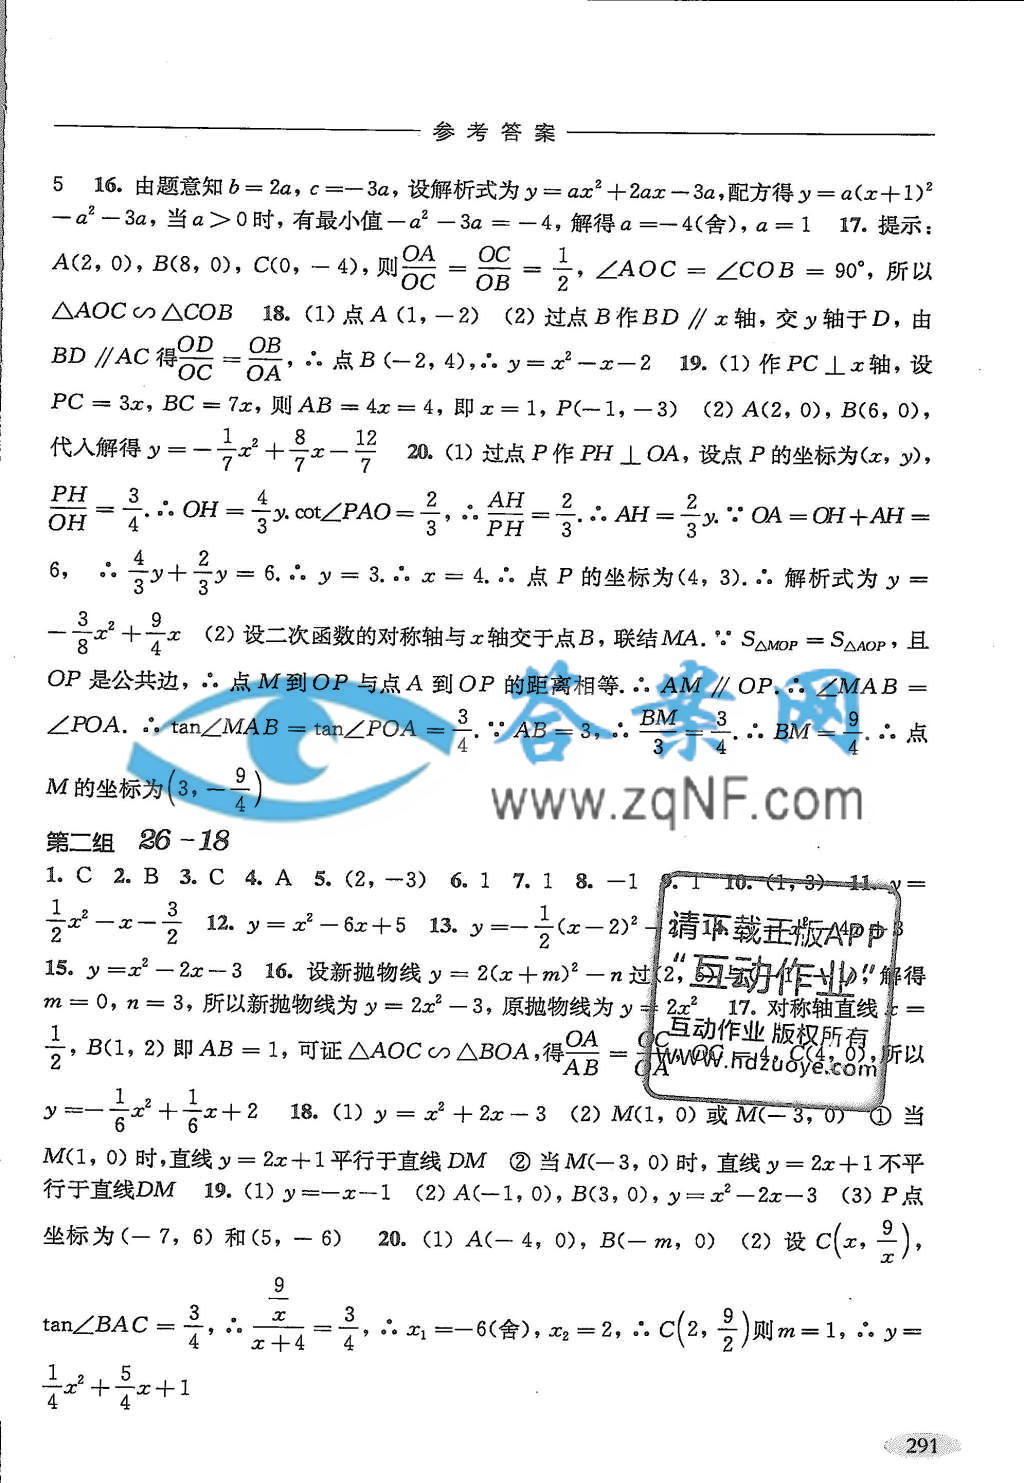 参考答案
5 16. 由题意知 b=2a, c=-3a, 设解析式为 y=ax²+2ax-3a,配方得 y=a(x+1)²
-a²-3a, 当 a>0时, 有最小值-a²-3a=-4, 解得 a=-4(舍), a=1 17. 提示:
A(2, 0), B(8, 0), C(0, -4), 则 OA/OC = OC/OB = 1/2, ∠AOC = ∠COB = 90°, 所以
△AOC∽△COB 18. (1) 点 A (1, -2) (2) 过点 B 作 BD // x 轴, 交 y 轴于 D, 由
BD // AC 得 OD/OC = OB/OA, ∴ 点 B (-2, 4),∴ y=x²-x-2 19. (1) 作 PC⊥x 轴, 设
PC = 3x, BC = 7x, 则 AB = 4x = 4, 即 x = 1, P(-1, -3) (2) A(2, 0), B(6, 0),
代入解得 y=-1/7x²+8/7x-12/7 20. (1) 过点 P 作 PH⊥OA, 设点 P 的坐标为(x, y),
PH/OH = 3/4.∴ OH = 4/3y. cot∠PAO = 2/3, ∴ AH/PH = 2/3.∴ AH = 2/3y. ∵ OA = OH+AH =
6, ∴ 4/3y+2/3y = 6.∴ y = 3.∴ x = 4.∴ 点 P 的坐标为(4, 3).∴ 解析式为 y =
-3/8x²+9/4x (2) 设二次函数的对称轴与 x 轴交于点 B, 联结MA. ∵ S△MOP = S△AOP, 且
OP 是公共边, ∴ 点 M 到 OP 与点 A 到 OP 的距离相等.∴ AM // OP.∴ ∠MAB =
∠POA. ∴ tan∠MAB = tan∠POA = 3/4. ∵ AB = 3, ∴ BM/3 = 3/4.∴ BM = 9/4.∴ 点
M 的坐标为(3, -9/4)
答案网
www.zqNF.com
第二组 26-18
1. C 2. B 3. C 4. A 5. (2, -3) 6. 1 7. 1 8. -1 9. 1 10. (1, 3) 11. y=
1/2x²-x-3/2 12. y=x²-6x+5 13. y=-1/2(x-2)²
15. y=x²-2x-3 16. 设新抛物线 y=2(x+m)²-n 过(2, 解得
m = 0, n = 3, 所以新抛物线为 y=2x²-3, 原抛物线为 y=2x² 17. 对称轴直线 x=
1/2, B(1, 2) 即 AB = 1, 可证 △AOC∽△BOA,得 OA/AB = OC/OA, OC = 4, C(4, 0), 所以
请下载正版APP
“互动作业”
互动作业 版权所有
www.hdzuoye.com
y=-1/6x²+1/6x+2 18. (1) y = x²+2x-3 (2) M(1, 0) 或 M(-3, 0) ① 当
M(1, 0) 时,直线 y=2x+1平行于直线 DM ② 当 M(-3, 0) 时, 直线 y=2x+1不平
行于直线DM 19. (1) y=-x-1 (2) A(-1, 0), B(3, 0), y=x²-2x-3 (3) P 点
坐标为(-7, 6) 和(5, -6) 20. (1) A(-4, 0), B(-m, 0) (2) 设 C(x, 9/x),
tan∠BAC = 3/4, ∴ (9/x)/(x+4) = 3/4, ∴ x₁=-6(舍), x₂=2, ∴ C(2, 9/2)则 m=1, ∴ y=
1/4x²+5/4x+1
291